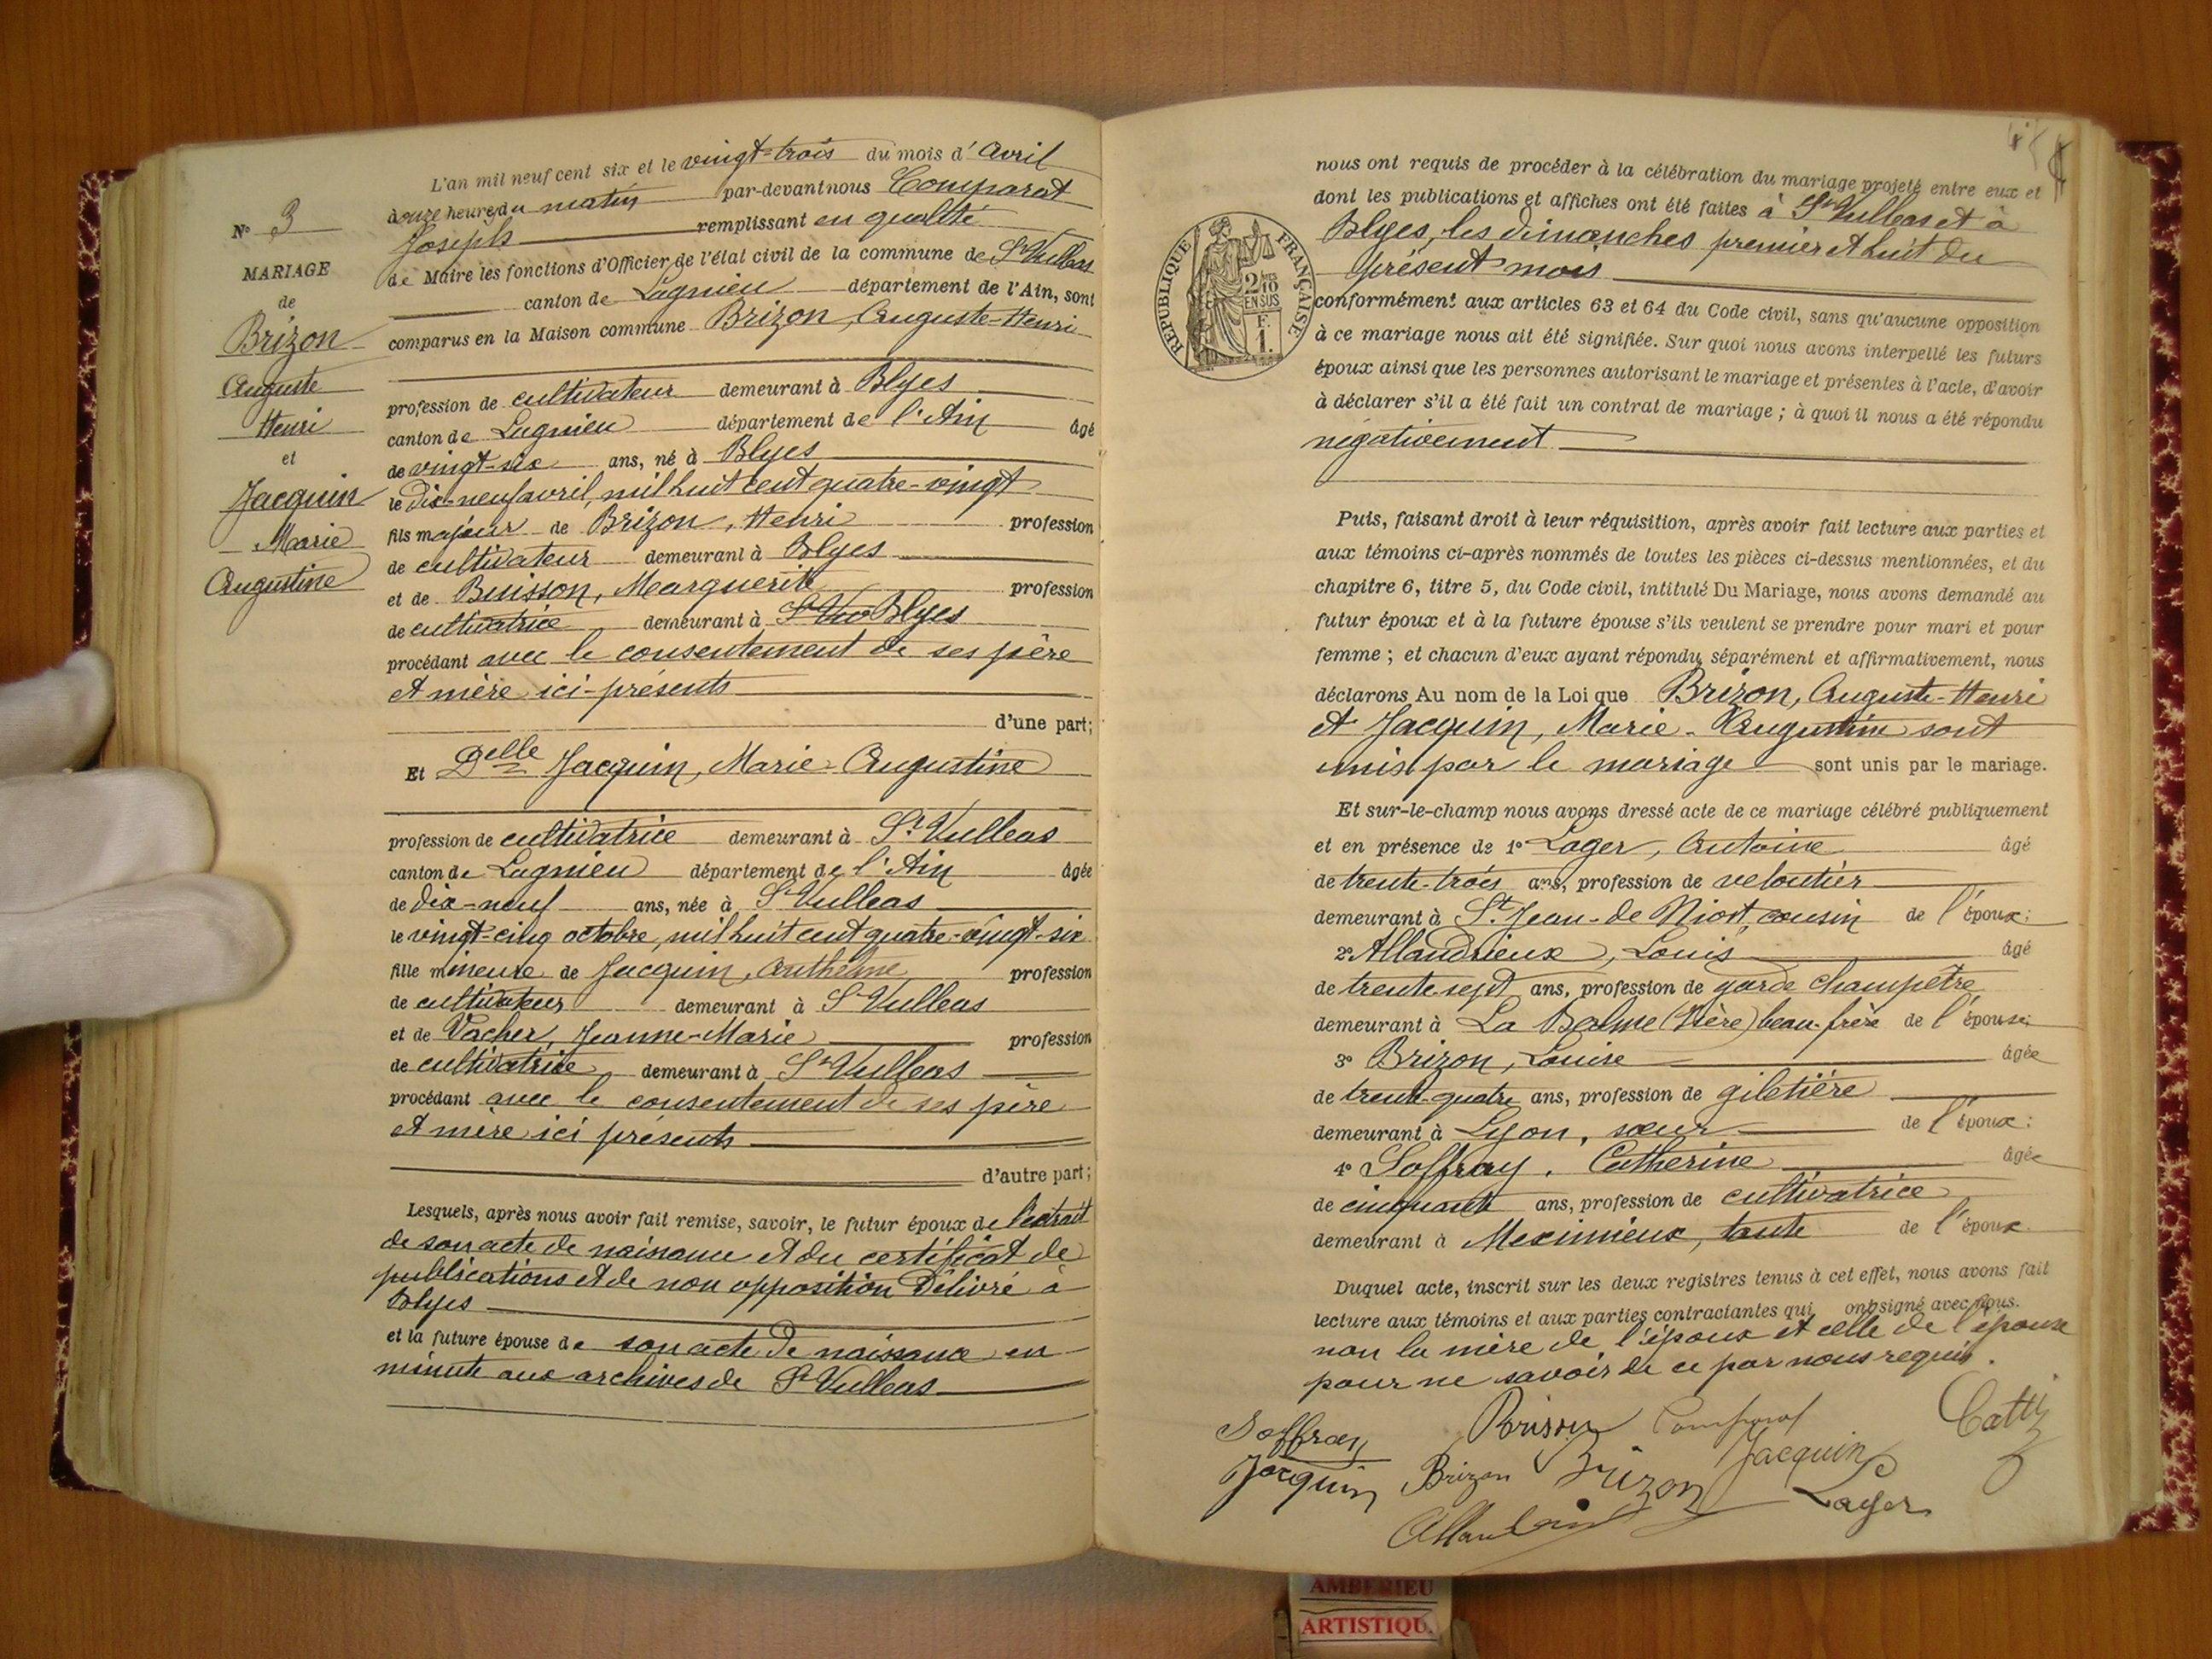 L'an mil neuf cent six et le vingt-trois du mois d'Avril
à onze heures du matin par-devant nous Comparat
Joseph remplissant en qualité
de Maire les fonctions d'Officier de l'état civil de la commune de St Vulbas
canton de Lagnieu département de l'Ain, sont
comparus en la Maison commune Brizon, Auguste-Henri
profession de cultivateur demeurant à Blyes
canton de Lagnieu département de l'Ain âgé
de vingt-six ans, né à Blyes
le dix-neuf avril, mil huit cent quatre-vingt
fils majeur de Brizon, Henri profession
de cultivateur demeurant à Blyes
et de Buisson, Marguerite profession
de cultivatrice demeurant à Blyes
procédant avec le consentement de ses père
et mère ici-présents
d'une part;
Et Delle Jacquin, Marie-Augustine
profession de cultivatrice demeurant à St Vulbas
canton de Lagnieu département de l'Ain âgée
de dix-neuf ans, née à St Vulbas
le vingt-cinq octobre, mil huit cent quatre-vingt-six
fille mineure de Jacquin, Anthelme profession
de cultivateur demeurant à St Vulbas
et de Vacher, Jeanne-Marie profession
de cultivatrice demeurant à St Vulbas
procédant avec le consentement de ses père
et mère ici présents
d'autre part;
Lesquels, après nous avoir fait remise, savoir, le futur époux de l'extrait
de son acte de naissance et du certificat de
publications et de non opposition délivré à
Blyes
et la future épouse de son acte de naissance en
minute aux archives de St Vulbas
No 3
MARIAGE
de
Brizon
Auguste
Henri
et
Jacquin
Marie
Augustine
nous ont requis de procéder à la célébration du mariage projeté entre eux et
dont les publications et affiches ont été faites à St Vulbas et à
Blyes, les dimanches premier et huit du
présent mois
conformément aux articles 63 et 64 du Code civil, sans qu'aucune opposition
à ce mariage nous ait été signifiée. Sur quoi nous avons interpellé les futurs
époux ainsi que les personnes autorisant le mariage et présentes à l'acte, d'avoir
à déclarer s'il a été fait un contrat de mariage ; à quoi il nous a été répondu
négativement
Puis, faisant droit à leur réquisition, après avoir fait lecture aux parties et
aux témoins ci-après nommés de toutes les pièces ci-dessus mentionnées, et du
chapitre 6, titre 5, du Code civil, intitulé Du Mariage, nous avons demandé au
futur époux et à la future épouse s'ils veulent se prendre pour mari et pour
femme ; et chacun d'eux ayant répondu séparément et affirmativement, nous
déclarons Au nom de la Loi que Brizon, Auguste-Henri
et Jacquin, Marie-Augustine sont
unis par le mariage sont unis par le mariage.
Et sur-le-champ nous avons dressé acte de ce mariage célébré publiquement
et en présence de 1o Lager, Antoine âgé
de trente-trois ans, profession de veloutier
demeurant à St Jean-de Niost, cousin de l'époux;
2o Allandrieux, Louis âgé
de trente-sept ans, profession de garde champêtre
demeurant à La Balme (Isère) beau-frère de l'épouse;
3o Brizon, Louise âgée
de trente-quatre ans, profession de giletière
demeurant à Lyon, sœur de l'époux;
4o Soffray, Catherine âgée
de cinquante ans, profession de cultivatrice
demeurant à Meximieux, tante de l'époux.
Duquel acte, inscrit sur les deux registres tenus à cet effet, nous avons fait
lecture aux témoins et aux parties contractantes qui ont signé avec nous.
non la mère de l'époux et celle de l'épouse
pour ne savoir de ce par nous requis.
Soffray Comparat
Jacquin Brizon Brizon Jacquin Lager
RÉPUBLIQUE FRANÇAISE
2/10
EN SUS
F.
1.
AMBERIEU
ARTISTIQU